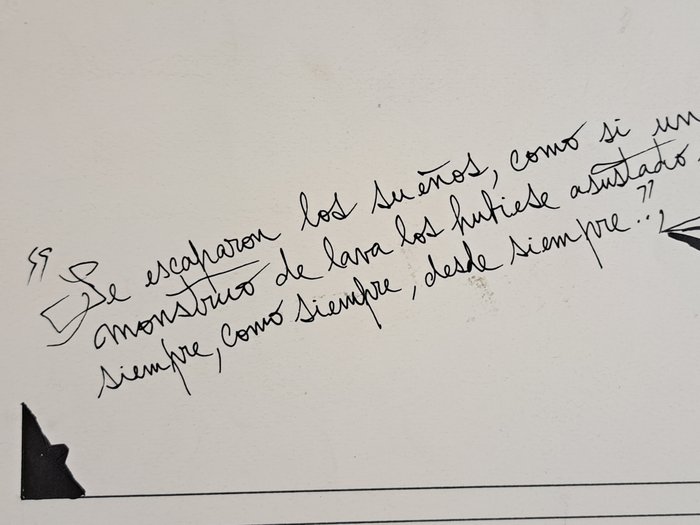 "Se escaparon los sueños, como si un
monstruo de lava los hubiese asustado.
siempre, como siempre, desde siempre..."